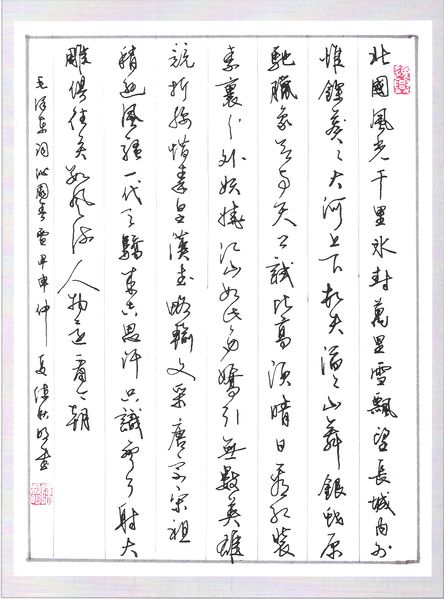 北國風光千里冰封萬里雪飄望長城内外
惟餘莽〻大河上下頓失滔〻山舞銀蛇原
馳臘象欲與天公試比高須晴日看紅裝
素裹分外妖嬈江山如此多嬌引無數英雄
競折腰惜秦皇漢武略輸文采唐宗宋祖
稍遜風騷一代天驕成吉思汗只識彎弓射大
雕俱往矣數風流人物還看今朝
毛泽東词沁園春雪甲申仲夏